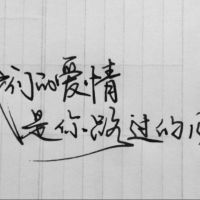 们的爱情
是你路过的